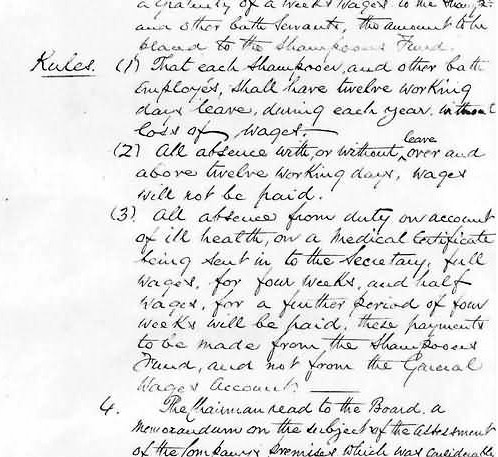 a gratuity of a weeks wages to the
and other bath servants, the amount to be
placed to the Shampooers Fund.
Rules. (1) That each Shampooer, and other bath
employés, shall have twelve working
days leave, during each year. without
loss of wages.
(2) All absence with, or without leave over and
above twelve working days, wages
will not be paid.
(3) All absence from duty on account
of ill health, on a Medical Certificate
being sent in to the Secretary, full
wages, for four weeks, and half
wages, for a further period of four
weeks will be paid, these payments
to be made from the Shampooers
Fund, and not from the General
Wages Account.
4. The Chairman read to the Board. a
Memorandum on the subject of the assessment
of the Company's premises which was considerable